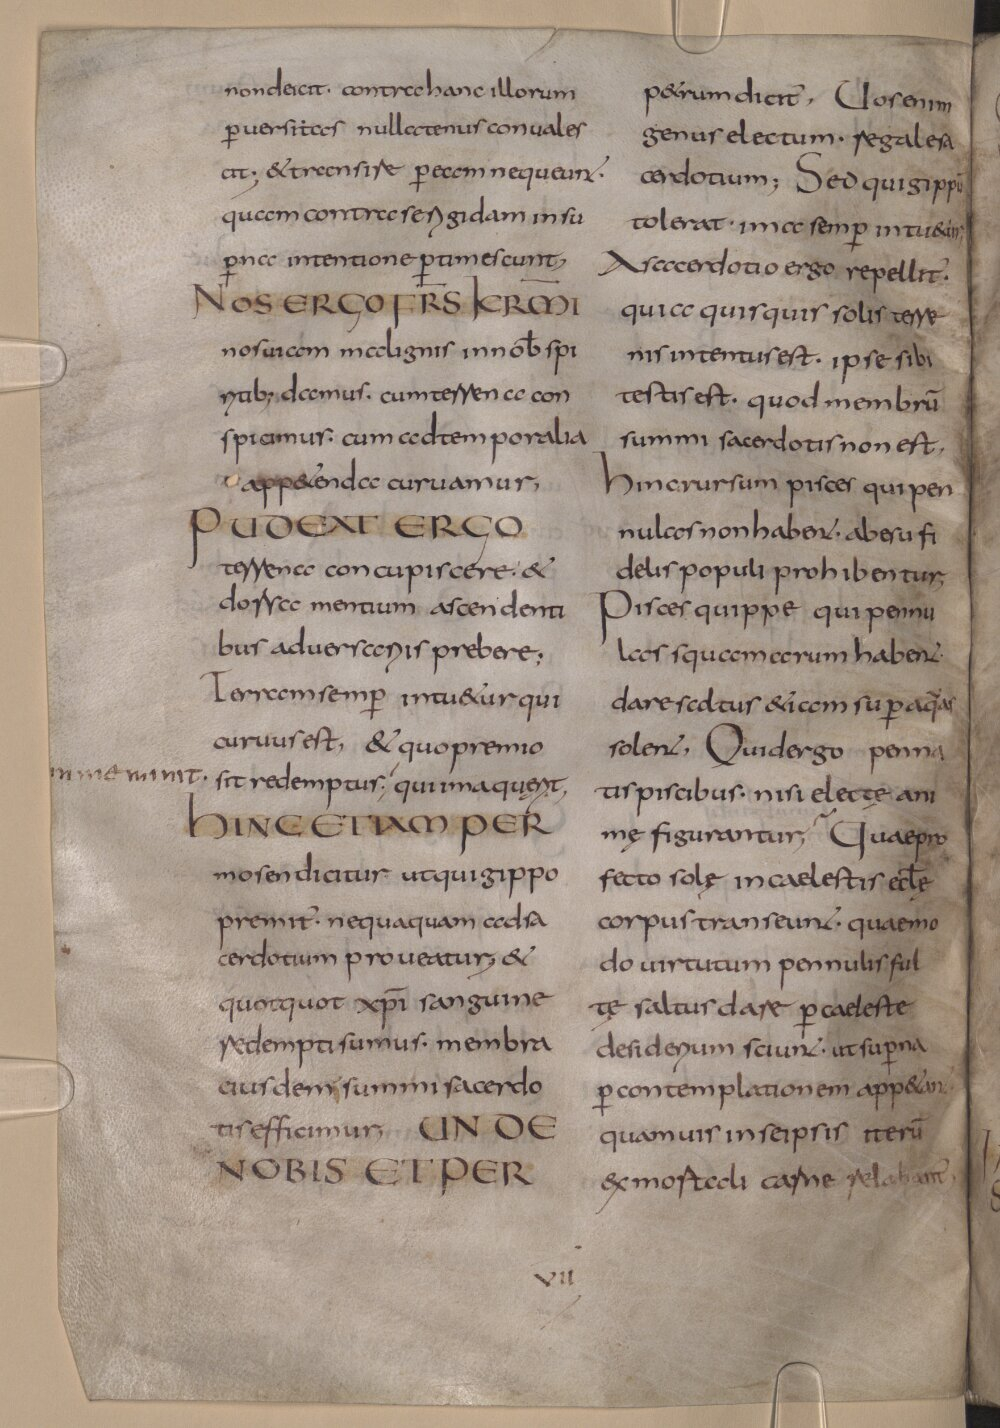 non deicit· contra hanc illorum
puersitas nullatenus conuales
cit; & transire p eam nequeunt·
quam contra se rigidam in su
pna intentione ptimescunt;
NOS ERGO FRS KARMI
nos uicem malignis in nob spi
ritib; damus· cum terrena con
spicimus· cum ad temporalia
app&enda curuamur;
PUDEAT ERGO
terrena concupiscere· &
dorsa mentium ascendenti
bus aduersariis prebere;
Terram semp intu&ur qui
curuus est, & quo premio
inmeminit· sit redemptus; qui ima querit,
HINC ETIAM PER
mosen dicitur ut qui gippo
premit· nequaquam ad sa
cerdotium proueatur; &
quotquot xpi sanguine
redempti sumus· membra
eiusdem summi sacerdo
tis efficimur; UNDE
NOBIS ET PER
p&rum dicit, Uos enim
genus electum· regale sa
cerdotium; Sed qui gippu
tolerat· ima semp intu&ur;
A sacerdotio ergo repellit·
quia quisquis solis terre
nis intentus est· ipse sibi
testis est· quod membru
summi sacerdotis non est,
Hinc rursum pisces qui pen
nulas non habent· ab esu fi
delis populi prohibentur;
Pisces quippe qui pennu
las squamarum habent·
dare saltus &iam sup aquas
solent, Quid ergo penna
tis piscibus· nisi electę ani
mę figurantur; Quae pro
fecto solę in caelestis eclę
corpus transeunt· quae mo
do uirtutum pennulis ful
tę saltus dare p caeleste
desiderium sciunt· ut supna
p contemplationem app&ant
quamuis in seipsis iteru
ex mortali carne relabant,
VII